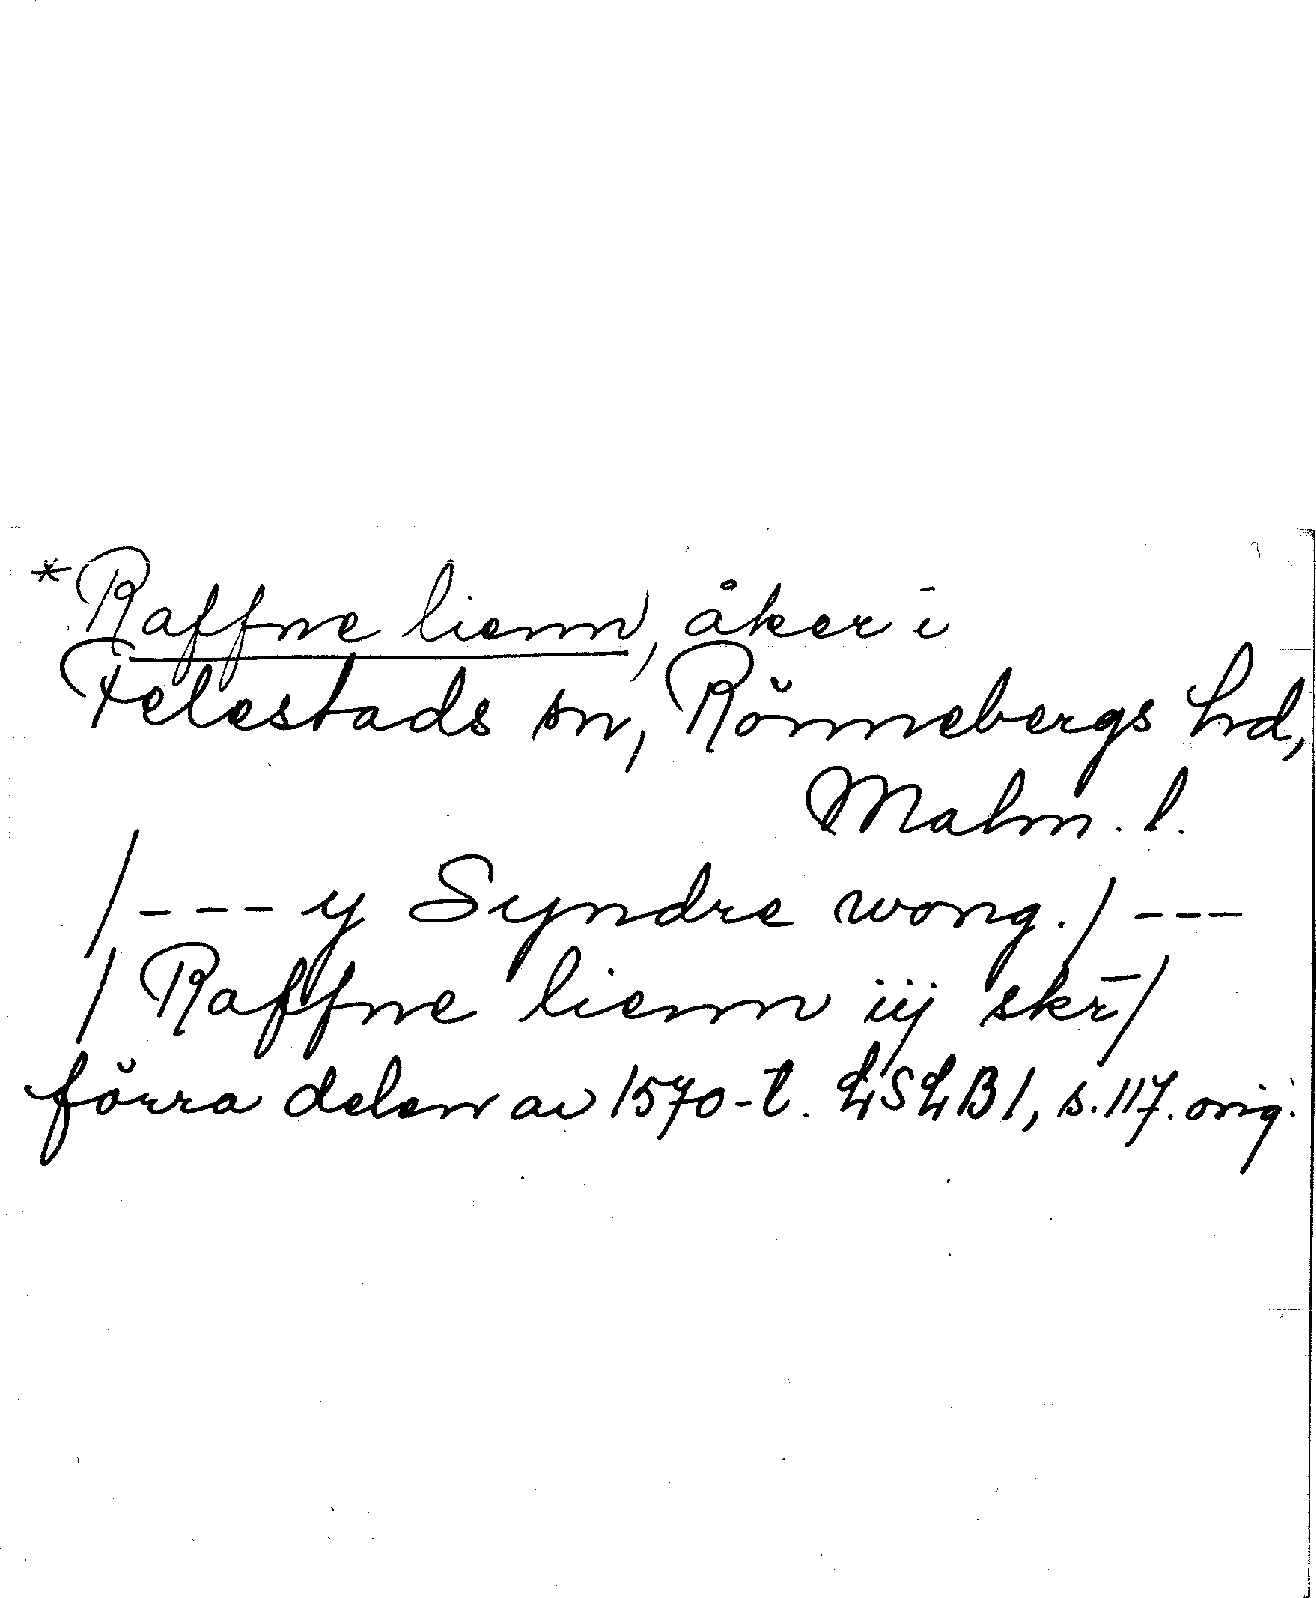 *Raffne lienn, åker i
Felestads sn, Rönnebergs hd,
Malm. l.
/--- y Syndre wong./ ---
/ Raffne lienn iij skr̄/
förra delen av 1570-t. LSLB 1, s. 117. orig.